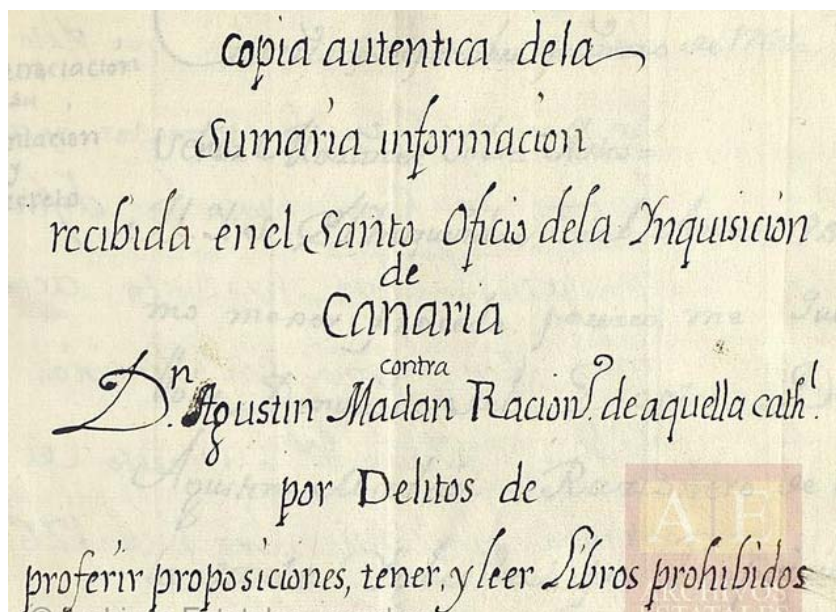 Copia autentica dela
Sumaria informacion
recibida enel Santo Oficio dela Ynquisicion
de
Canaria
contra
Dn. Agustin Madan Racionº. de aquella cathl.
por Delitos de
proferir proposiciones, tener, y leer Libros prohibidos